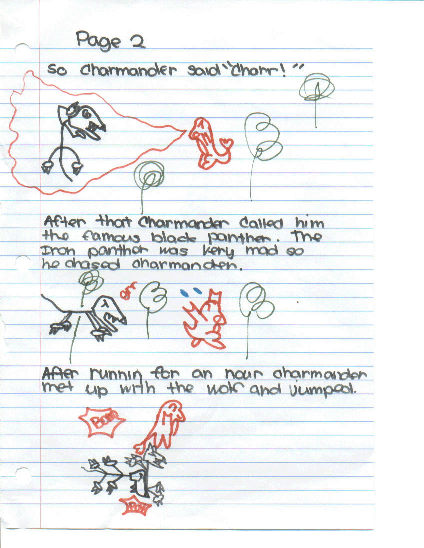 Page 2
So Charmander said "Charr!"
After that Charmander called him
the famous black panther. The
Iron panther was very mad so
he chased charmander.
grr
After runnin for an hour charmander
met up with the wolf and jumped.
Bam